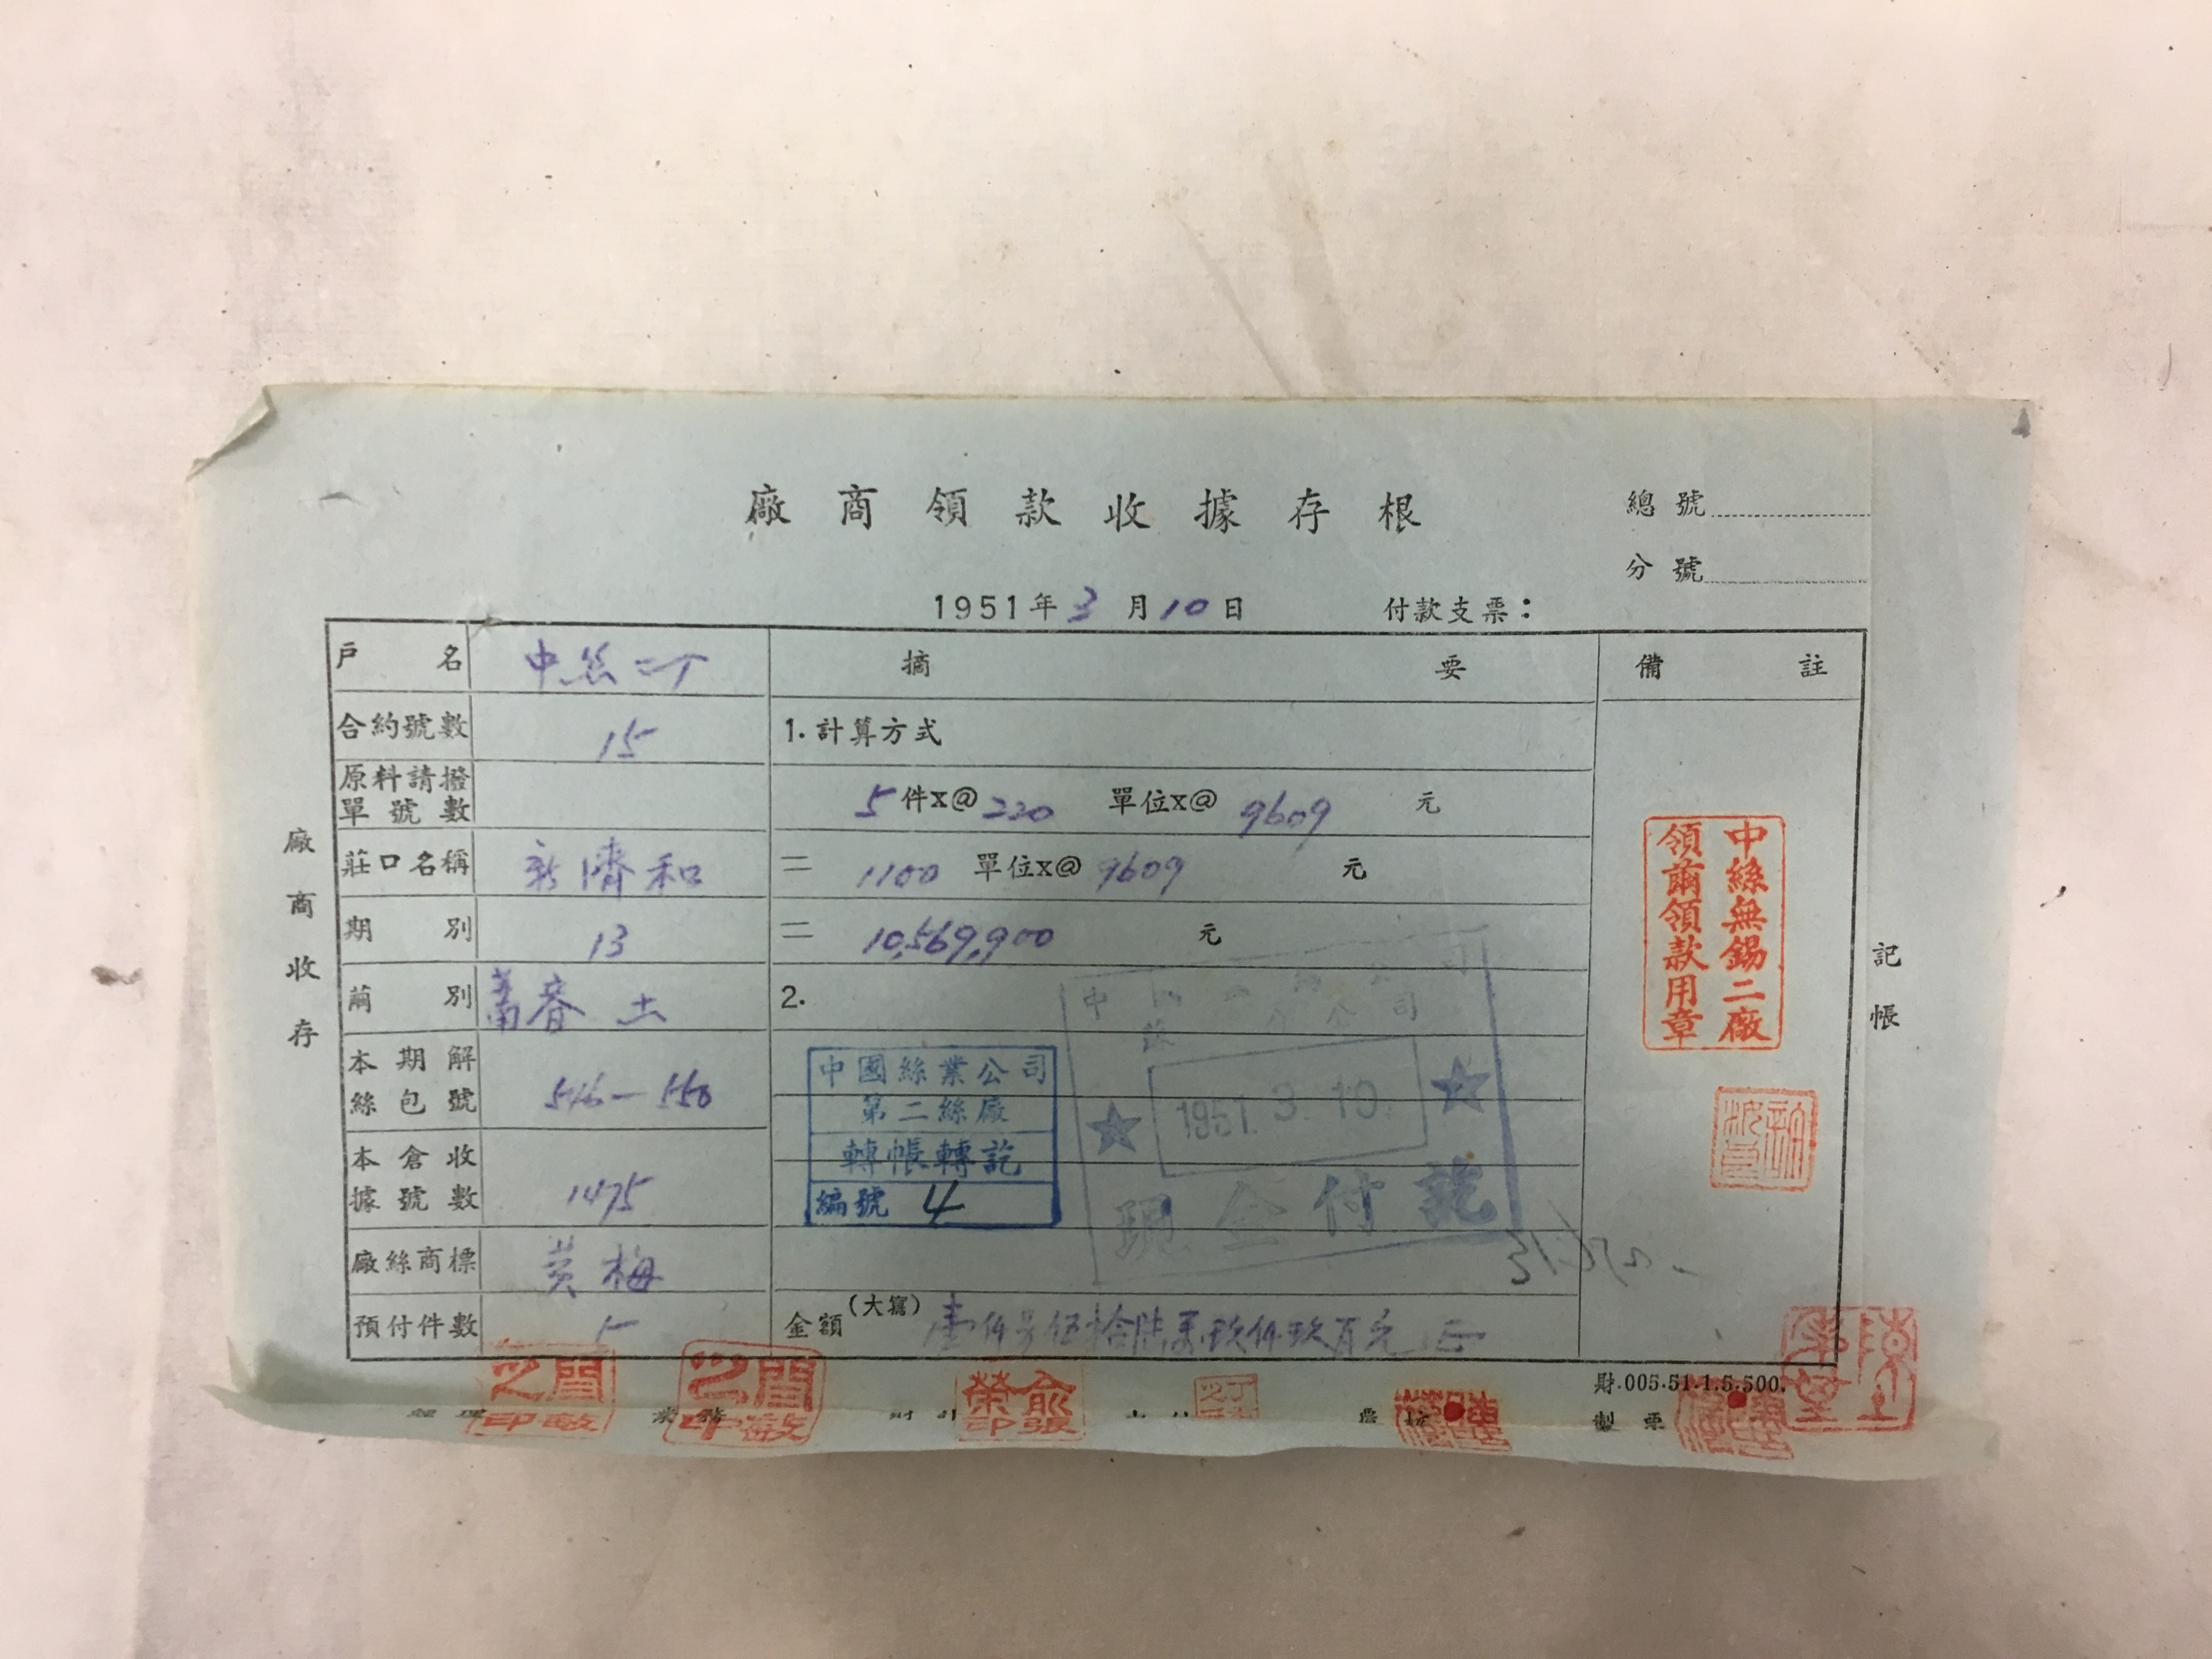 廠商領款收據存根
總號
分號
1951年3月10日 付款支票：
戶名 中絲二丁
摘要
備註
合約號數 15
1.計算方式
原料請撥單號數
5件x@220 單位x@9609元
莊口名稱 新濟和
=1100單位x@9609元
期別 13
=10,569,900元
繭別 春土
2.
本期解絲包號 546—550
本倉收據號數 1475
廠絲商標 黃梅
預付件數 5
金額(大寫) 壹仟另伍拾陸萬玖仟玖百元正
廠商收存
記帳
中國絲業公司
第二絲廠
轉帳轉訖
編號 4
1951.3.10.
現金付訖
中絲無錫二廠
領繭領款用章
財.005.51.1.5.500.
製票